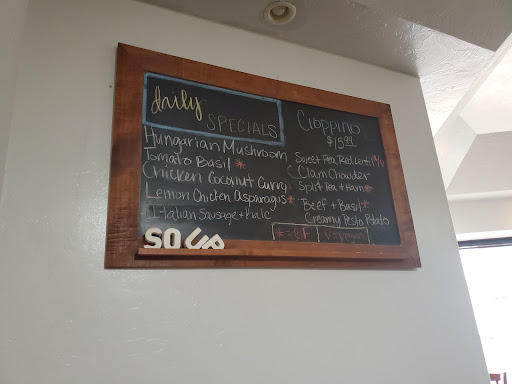 daily
SPECIALS
Hungarian Mushroom
Tomato Basil *
Chicken Coconut Curry
Lemon Chicken Asparagus *
Italian Sausage + Kale
SOUP
Cioppino
$15.99
Sweet Pea, Red Lentil
Clam Chowder
Split Pea + Ham *
Beef + Basil *
Creamy Pesto Potato
* = GF V = Vegan